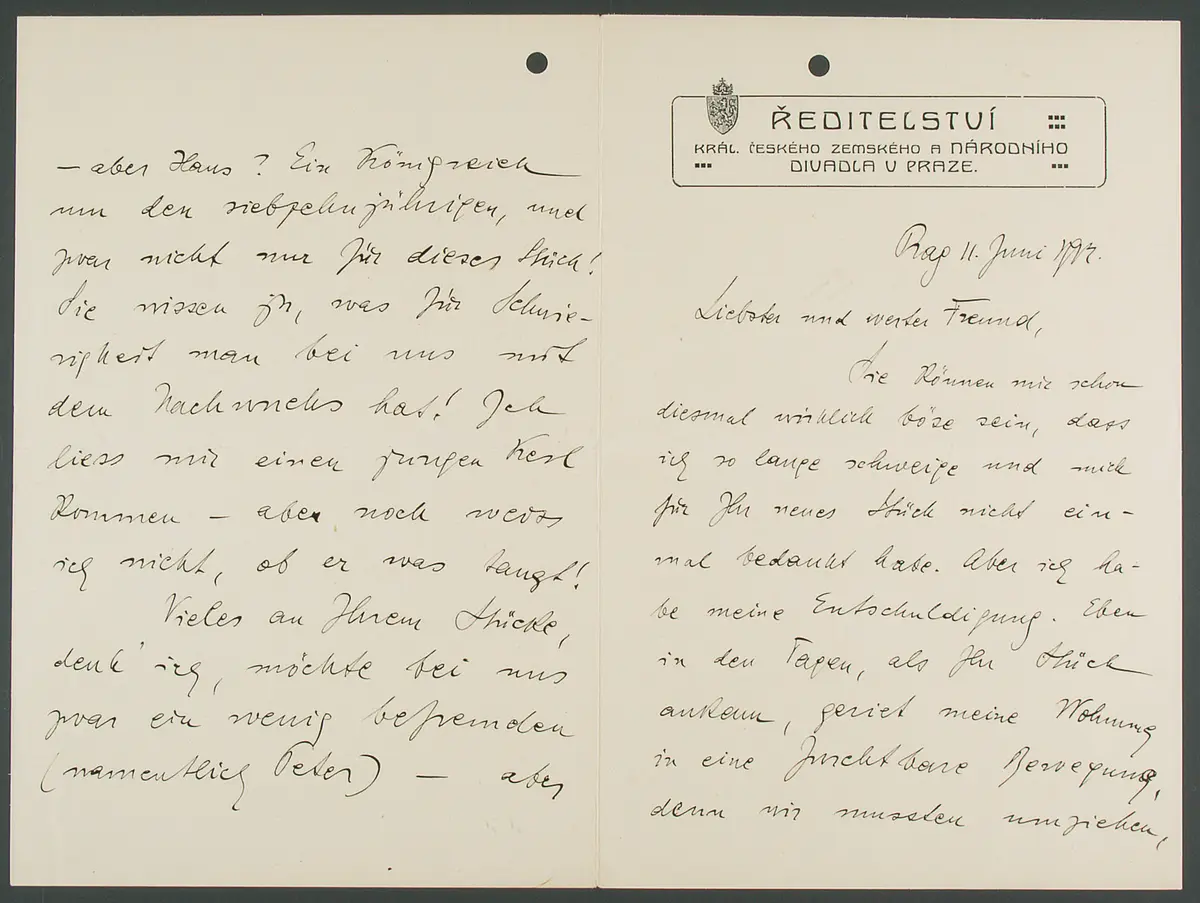 ŘEDITELSTVÍ
KRÁL. ČESKÉHO ZEMSKÉHO A NÁRODNÍHO
DIVADLA V PRAZE.
Prag 11. Juni 1912.
Liebster und werter Freund,
Sie können mir schon
diesmal wirklich böse sein, dass
ich so lange schweige und mich
für Ihr neues Stück nicht ein-
mal bedankt habe. Aber ich ha-
be meine Entschuldigung. Eben
in den Tagen, als Ihr Stück
ankam, geriet meine Wohnung
in eine furchtbare Bewegung,
denn wir mussten umziehen,
– aber Hans? Ein Königreich
um den siebzehnjährigen, und
zwar nicht nur für dieses Stück!
Sie wissen ja, was für Schwie-
rigkeit man bei uns mit
dem Nachwuchs hat! Ich
liess mir einen jungen Kerl
kommen – aber noch weiss
ich nicht, ob er was taugt!
Vieles an Ihrem Stücke,
denk' ich, möchte bei uns
zwar ein wenig befremden
(namentlich Peter) – aber